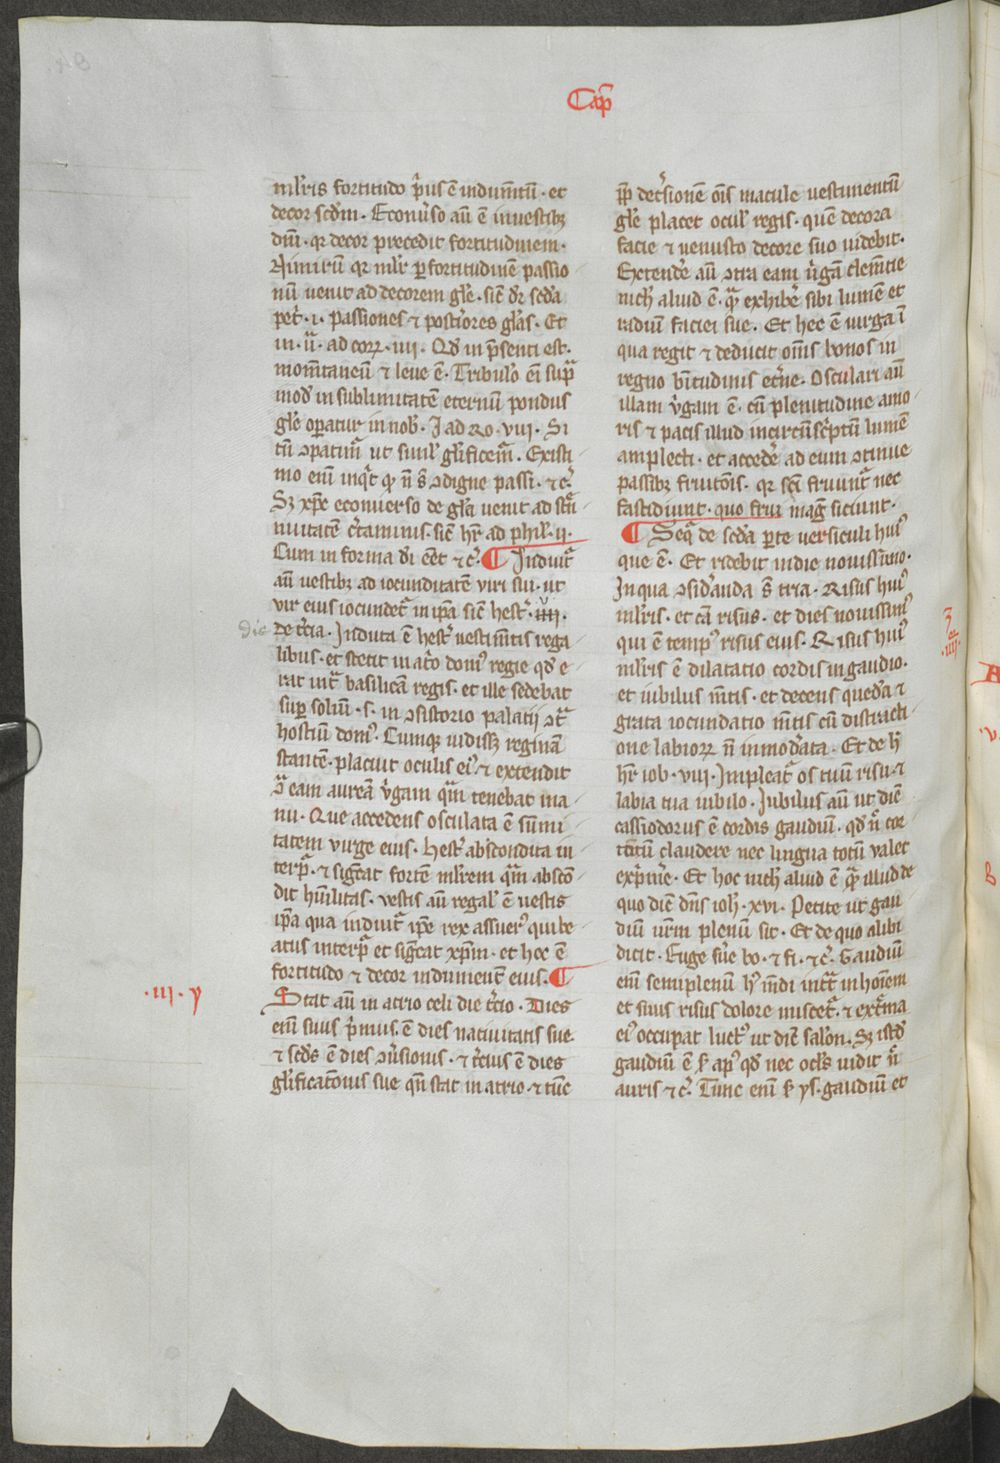 Cap̃
ml̃ris fortitudo p̃us ẽ indum̃tũ · et
decor scd̃m · Econũso aũ ẽ in uestibȝ
dñi · qr decor precedit fortitudinem ·
Nimirũ qr ml̃r ꝑ fortitudinẽ passio
nũ uenit ad decorem gl̃e · sic̃ dr̃ scd̃a
pet̃ · i · passiones ⁊ post̃iores gl̃as · Et
in · ii ᷓ · ad corꝝ · iiij · Qd̃ in p̃senti est ·
mom̃taneũ ⁊ leue ẽ · Tribul̃o eĩ sup̃
mod̃ in sublimitatẽ eternũ pondus
gl̃e oꝑatur in nob̃ · J ad Ro · viij · Si
tñ ꝯpatim̃ ut simil̃ gl̃ificem̃ · Existi
mo eni inq̃t ꝙ ñ s̃ ꝯdigne passi · ⁊c̃
Sȝ xp̃c econuerso de gl̃a uenit ad stẽ
nuitatẽ c̃taminis · sic̃ hr̃ ad phil̃ · ij ·
Cum in forma dĩ eẽt ⁊c̃ · ¶ Induit̃
aũ uestibȝ ad iocunditatẽ uiri sui · ut
uir eius iocundet̃ in ip̃a sic̃ hest̃ · iiij ·
die
de t̃cia · Induta ẽ hest̃ uestim̃tis rega
libus · et stetit in at̃o dom᷒ regie qd̃ e
rat int̃ basilicã regis · et ille sedebat
suꝑ soliũ · s · in ꝯsistorio palatij ꝯt̃
hostiũ dom᷒ · Cumqȝ uidissȝ reginã
stantẽ · placuit oculis ei᷒ ⁊ extendit
ꝯ̃ eam aureã ũgam q̃m tenebat ma
nu · Que accedens osculata ẽ sũmi
tatem uirge eius · hest̃ abscondita in
terp̃ · ⁊ sig̃cat fortẽ ml̃rem q̃m abscõ
dit hũilitas · uestis aũ regal̃ ẽ uestis
ip̃a qua induit̃ ip̃e rex assuer᷒ qui be
atus interp̃ et sig̃cat xp̃m · et hec ẽ
fortitudo ⁊ decor indumenẽ eius · ¶
· iij · y
Stat aũ in atrio celi die t̃cio · Dies
eni suus p̃mus ẽ dies natiuitatis sue
⁊ scd̃s ẽ dies ꝯũsionis · ⁊ t̃cius ẽ dies
gl̃ificat̃onis sue qñ stat in atrio · ⁊ tũc
ꝓp̃ det̃sionẽ oĩs macule uestimentũ
gl̃e placet ocul̃ regis · quẽ decora
facie ⁊ uenusto decore suo uidebit ·
Extendẽ aũ ꝯtra eam ũgã clem̃tie
nich̃ aliud ẽ · q̃ exhibẽ sibi lumẽ et
radiũ faciei sue · Et hec ẽ uirga ĩ
qua regit ⁊ deducit om̃s bonos in
regno b̃itudinis et̃ne · Osculari aũ
illam ũgam ẽ · cũ plenitudine amo
ris ⁊ pacis illud incircũsc̃ptũ lumẽ
amplecti · et accedẽ ad eum ꝯtinue
passibȝ fruit̃onis · qr sc̃i fruunt̃ nec
fastidiunt · quo frui mag̃ siciunt ·
¶ Seq̃ de scd̃a ꝑte uersiculi hui᷒
que ẽ · Et ridebit in die nouissimo ·
In qua ꝯsid̃anda s̃ tria · Risus hui᷒
3
a
· iiij ·
ml̃ris · et cã risus · et dies nouissim᷒
qui ẽ temp᷒ risus eius · Risus hui᷒
ml̃ris ẽ dilatatio cordis in gaudio ·
et iubilus m̃tis · et decens qued̃a ⁊
grata iocundatio m̃tis cũ distracti
one labioꝝ ñ inmod̃ata · Et de h̃
hr̃ iob · viij · Impleat̃ os tuũ risu · ⁊
labia tua iubilo · Jubilus aũ ut diẽ
cassiodorus ẽ cordis gaudiũ · qd̃ ñ cor
totũ claudere nec lingua totũ ualet
exp̃mẽ · Et hoc nich̃ aliud ẽ q̃ illud de
quo diẽ dñs ioh̃ · xvi · Petite ut gau
diũ ur̃m plenũ sit · Et de quo alibi
dicit · Euge sũe bo · ⁊ fi · ⁊c̃ · Gaudiũ
eni semiplenũ h᷒ m̃di intt̃ in hoĩem
et suus risus dolore miscet̃ · ⁊ ext̃ma
ei᷒ occupat luct᷒ ut diẽ salon̄ · Sȝ istd̃
gaudiũ ẽ s̃ ap᷒ qd̃ nec ocl̃s uidit ñ
auris ⁊c̃ · Tunc eni s̃ ys · gaudiũ et